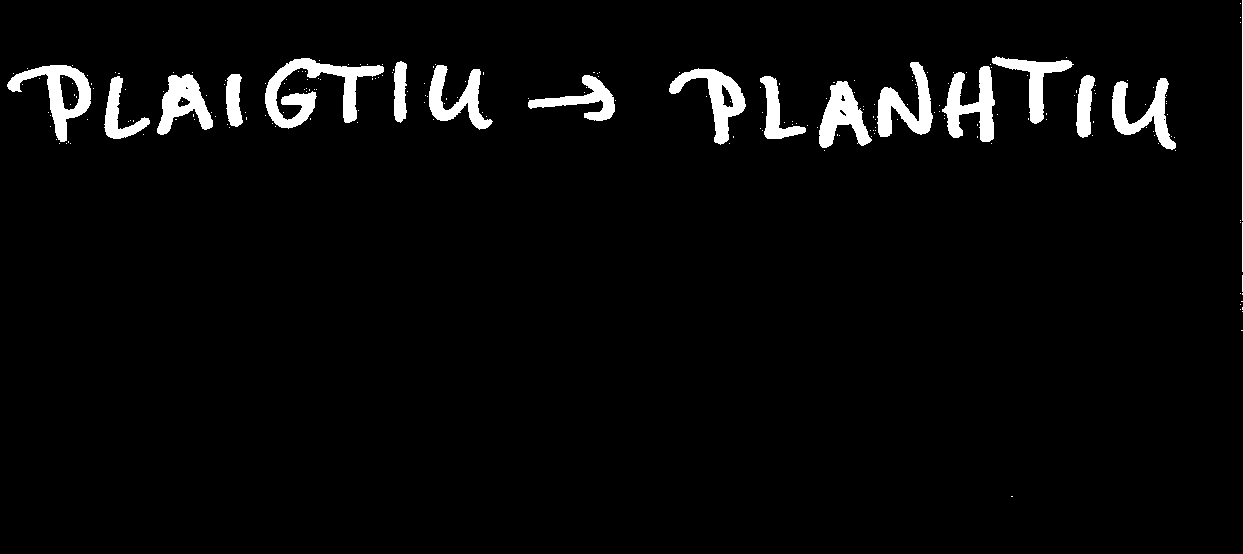 PLAIGTIU → PLANHTIU